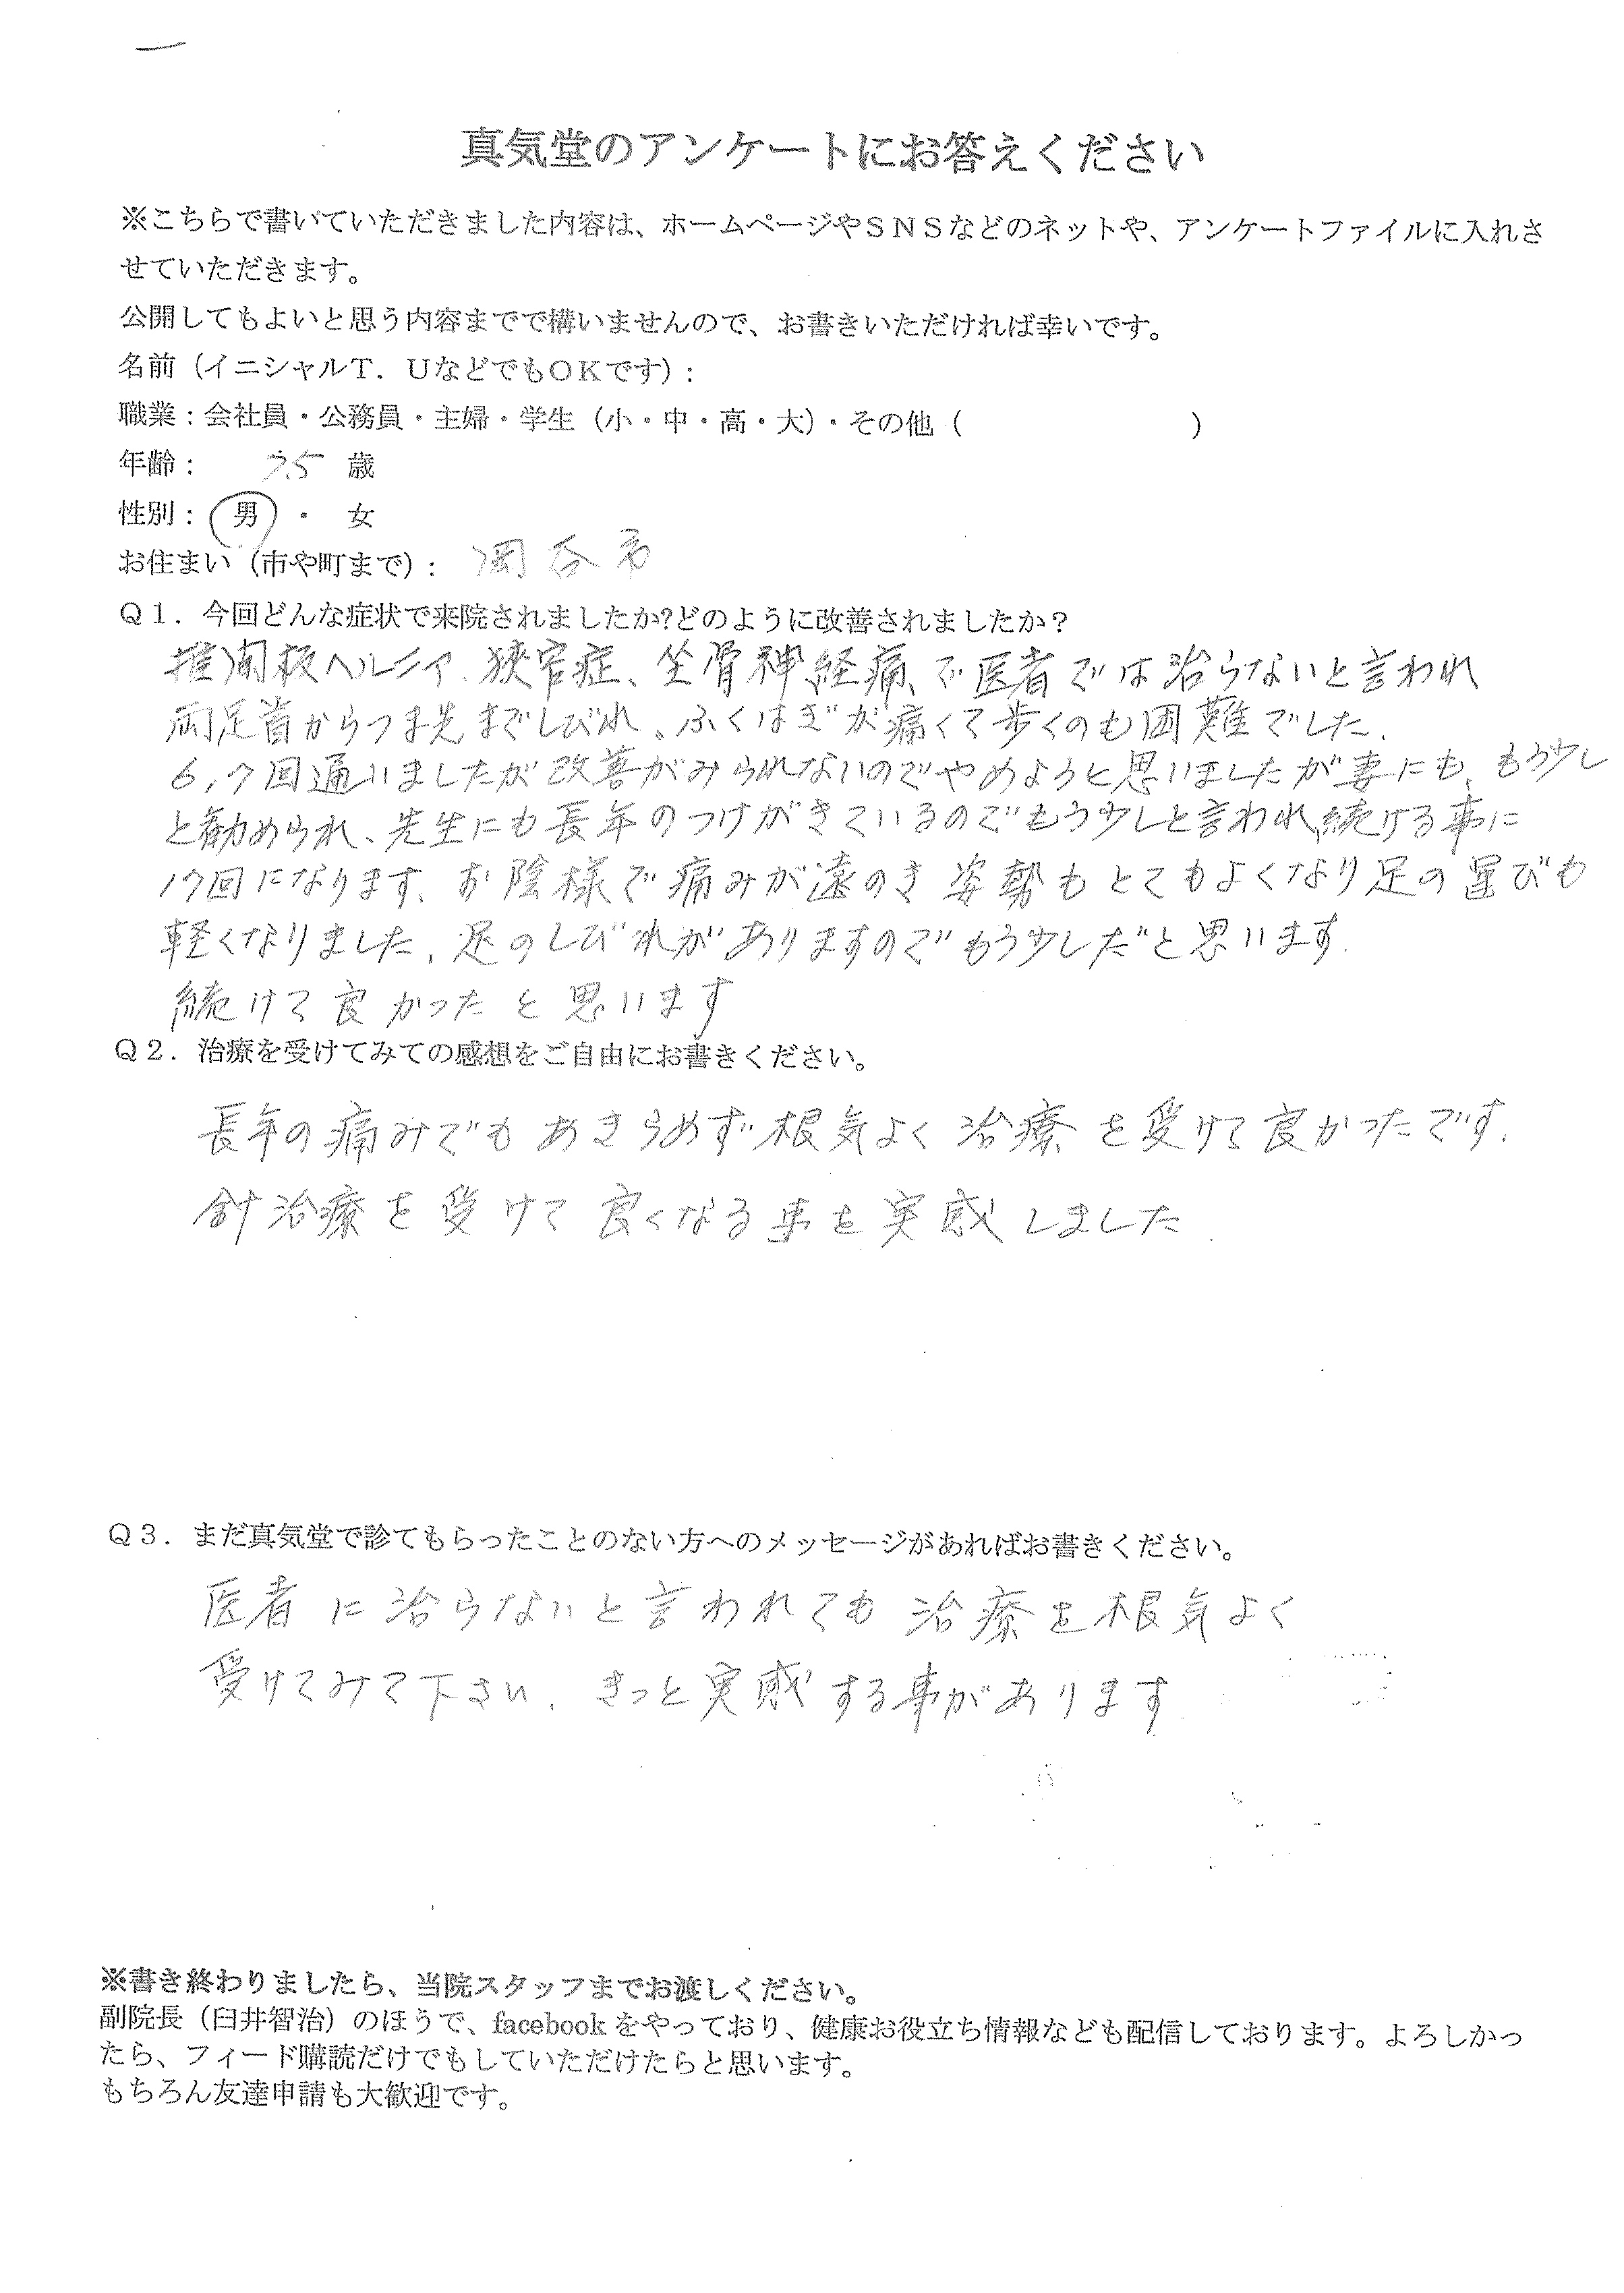 真気堂のアンケートにお答えください
※こちらで書いていただきました内容は、ホームページやＳＮＳなどのネットや、アンケートファイルに入れさ
せていただきます。
公開してもよいと思う内容までで構いませんので、お書きいただければ幸いです。
名前（イニシャルＴ．ＵなどでもＯＫです）：
職業：会社員・公務員・主婦・学生（小・中・高・大）・その他（　　　　　　　　）
年齢：　75 歳
性別：男 ・ 女
お住まい（市や町まで）：岡谷市
Ｑ１．今回どんな症状で来院されましたか?どのように改善されましたか？
椎間板ヘルニア、狭官症、坐骨神経痛、で医者では治らないと言われ
両足首からつま先までしびれ、ふくはぎが痛くて歩くのも困難でした。
6,7回通いましたが改善がみられないのでやめようと思いましたが妻にも、もう少し
と勧められ、先生にも長年のつけがきているのでもう少しと言われ、続ける事に
17回になります、お陰様で痛みが遠のき姿勢もとてもよくなり足の運びも
軽くなりました。足のしびれがありますのでもう少しだと思います。
続けて良かったと思います
Ｑ２．治療を受けてみての感想をご自由にお書きください。
長年の痛みでもあきらめず根気よく治療を受けて良かったです。
針治療を受けて良くなる事を実感しました。
Ｑ３．まだ真気堂で診てもらったことのない方へのメッセージがあればお書きください。
医者に治らないと言われても治療を根気よく
受けてみて下さい。きっと実感する事があります
※書き終わりましたら、当院スタッフまでお渡しください。
副院長（臼井智治）のほうで、facebookをやっており、健康お役立ち情報なども配信しております。よろしかっ
たら、フィード購読だけでもしていただけたらと思います。
もちろん友達申請も大歓迎です。